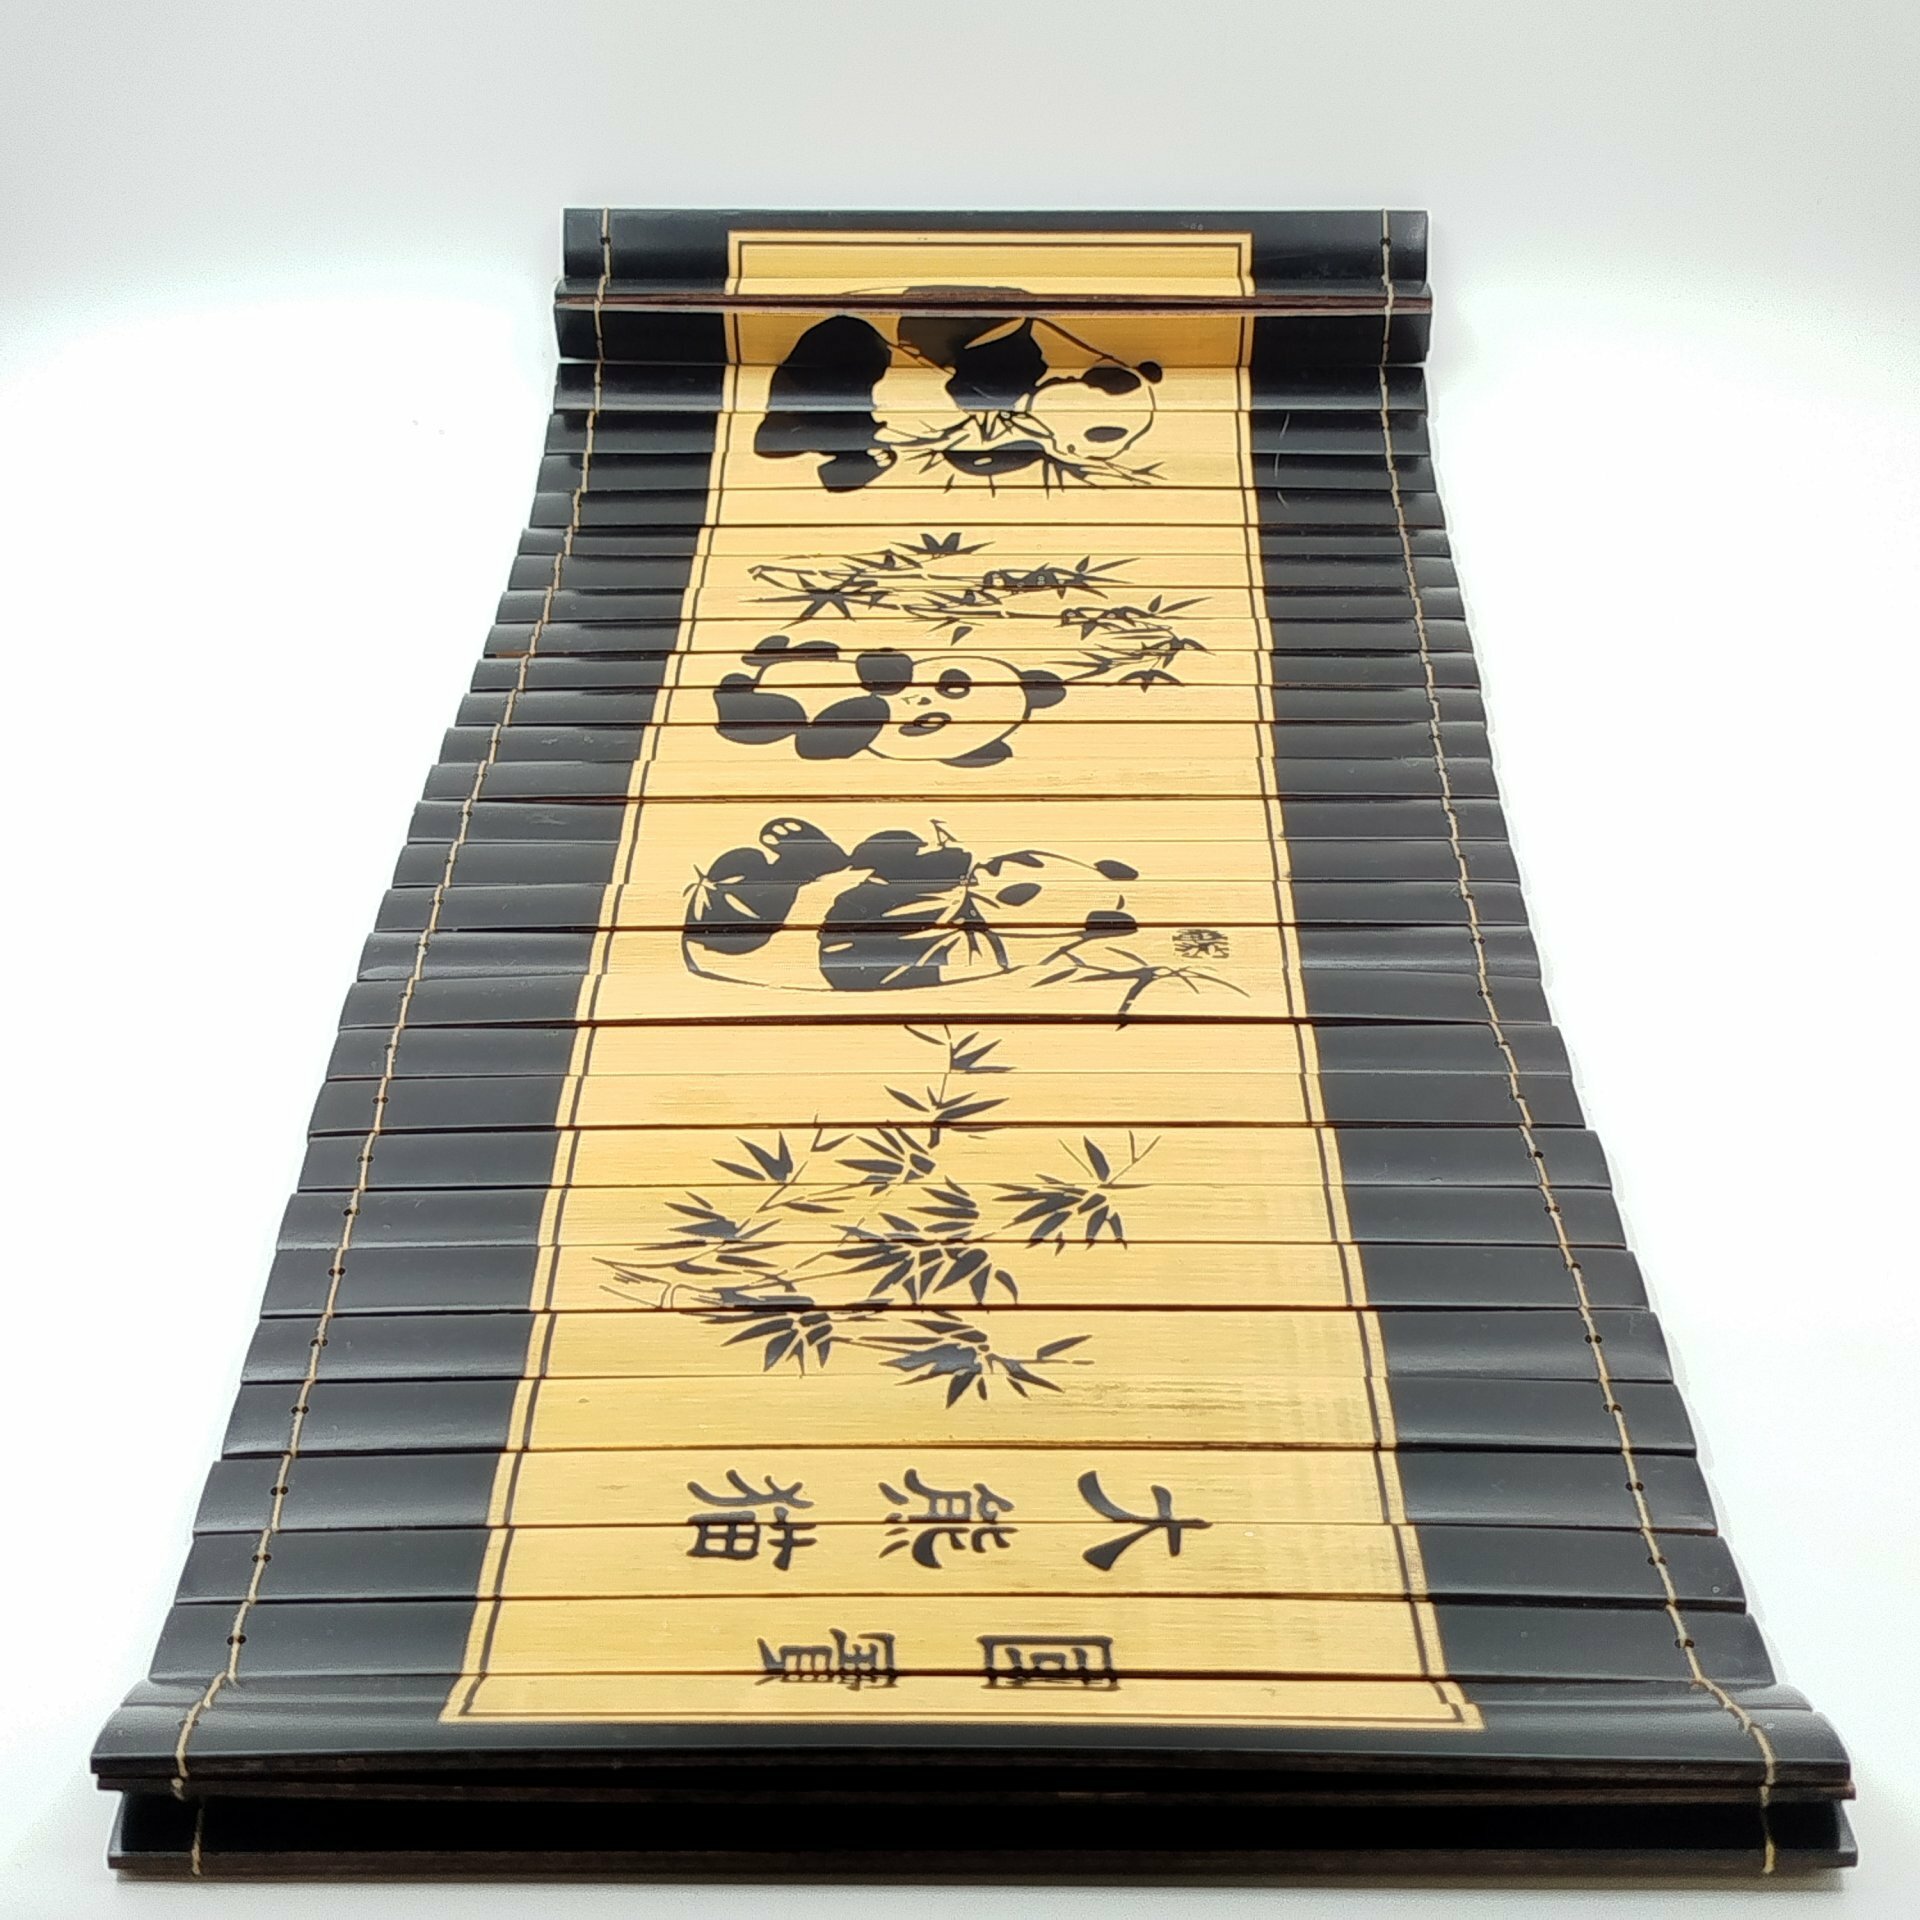 国寶
大熊猫